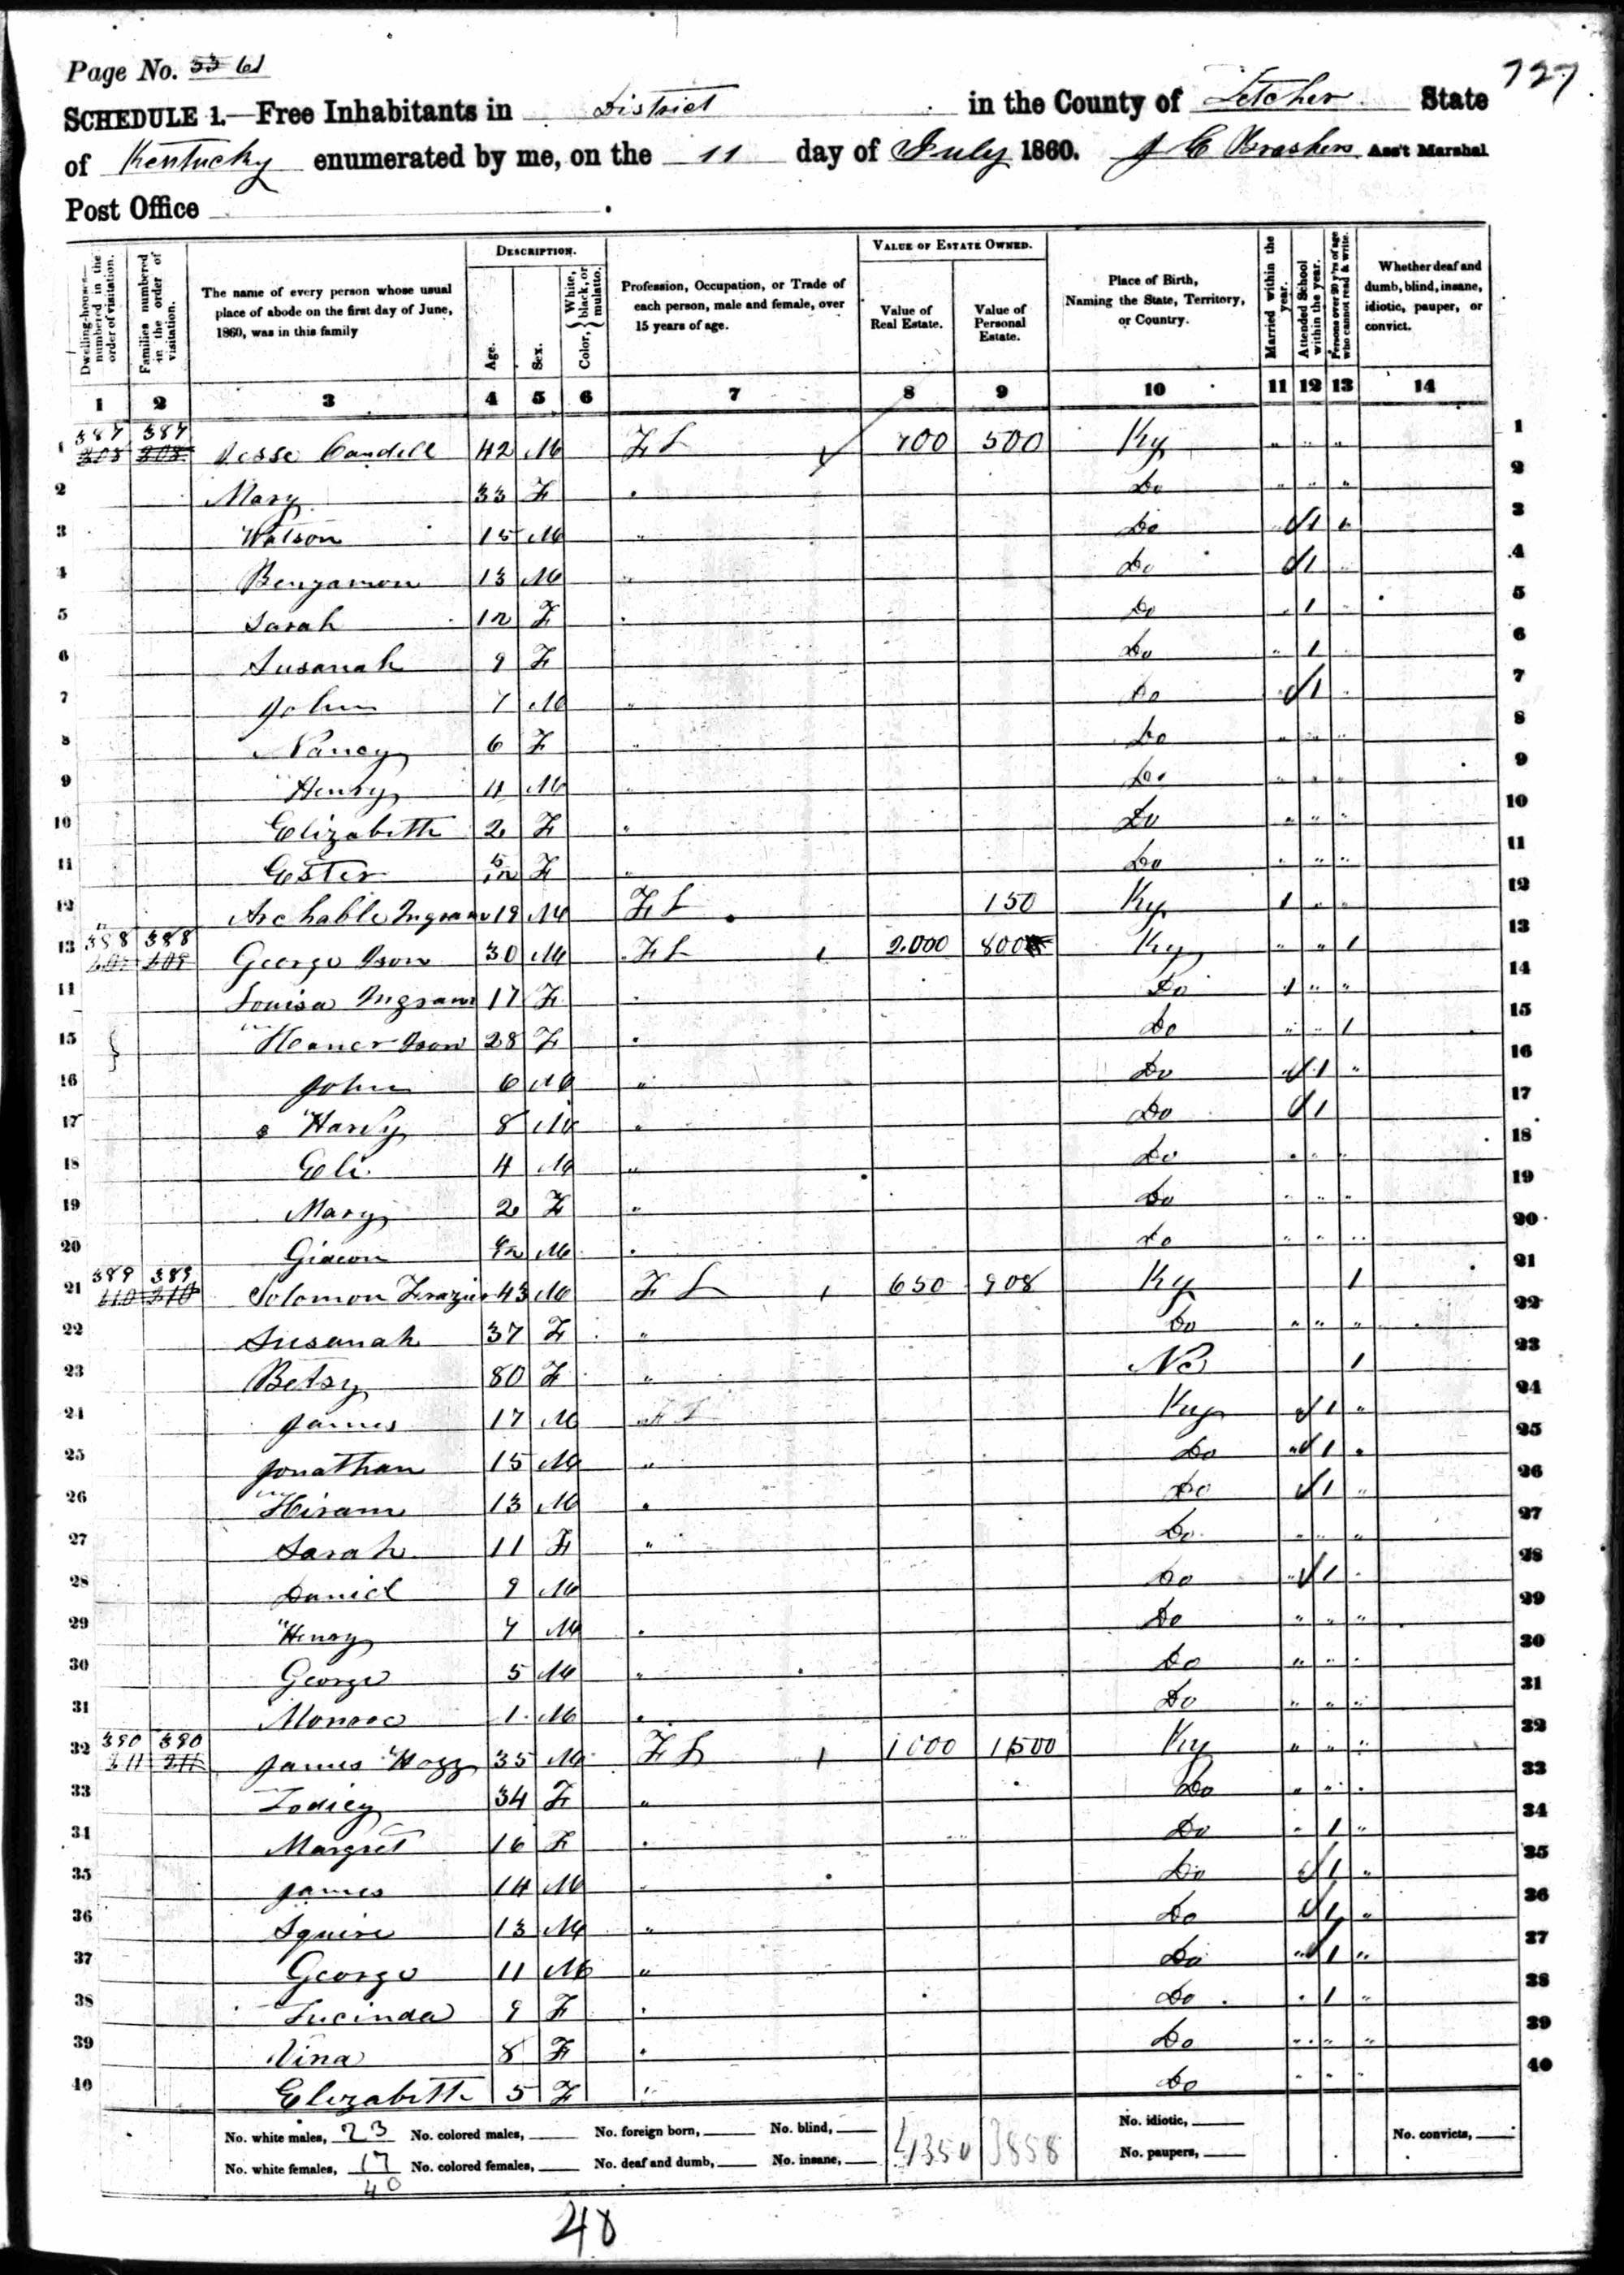 Page No. 53 61
727
SCHEDULE 1.—Free Inhabitants in District in the County of Letcher State
of Kentucky enumerated by me, on the 11 day of July 1860. J C Brashers Ass't Marshal
Post Office
Dwelling-houses—numbered in the order of visitation.
Families numbered in the order of visitation.
The name of every person whose usual place of abode on the first day of June, 1860, was in this family
DESCRIPTION.
Age.
Sex.
Color, { White, black, or mulatto.
Profession, Occupation, or Trade of each person, male and female, over 15 years of age.
VALUE OF ESTATE OWNED.
Value of Real Estate.
Value of Personal Estate.
Place of Birth, Naming the State, Territory, or Country.
Married within the year.
Attended School within the year.
Persons over 20 y'rs of age who cannot read & write.
Whether deaf and dumb, blind, insane, idiotic, pauper, or convict.
1 2 3 4 5 6 7 8 9 10 11 12 13 14
387 387
1 208 208 Jesse Caudill 42 M F L 700 500 Ky " " " 1
2 Mary 33 F " Do " " " 2
3 Watson 15 M " Do " 1 " 3
4 Benjamon 13 M " Do 1 " 4
5 Sarah 12 F " Do " 1 " 5
6 Susanah 9 F Do " 1 " 6
7 John 7 M " Do " 1 " 7
8 Nancy 6 F " Do " " " 8
9 Henry 4 M " Do " " " 9
10 Elizabeth 2 F " Do " " " 10
11 Ester 5/12 F " Do " " " 11
12 Archable Ingram 19 M F L 150 Ky 1 " " 12
388 388
13 209 209 George Ison 30 M F L 2.000 800 Ky " " 1 13
14 Louisa Ingram 17 F " Do 1 " " 14
15 Heaner Ison 28 F " Do " " 1 15
16 John 6 M " Do " 1 " 16
17 Hardy 8 M " Do 1 17
18 Eli 4 M " Do " " " 18
19 Mary 2 F " Do " " " 19
20 Gideon M " Do " " " 20
389 389
21 210 210 Solomon Frazier 43 M F L 650 908 Ky 1 21
22 Susanah 37 F " Do " " " 22
23 Betsy 80 F " NC 1 23
24 James 17 M F L Ky " 1 " 24
25 Jonathan 15 M " Do " 1 " 25
26 Hiram 13 M " Do 1 " 26
27 Sarah 11 F " Do " " " 27
28 Daniel 9 M Do " 1 " 28
29 Henry 7 M " Do " " " 29
30 George 5 M " Do " " " 30
31 Monroe 1 M " Do " " " 31
390 390
32 211 211 James Hogg 35 M F L 1000 1500 Ky " " " 32
33 Lodicy 34 F " Do " " " 33
34 Margret 16 F " Do " 1 " 34
35 James 14 M " Do 1 " 35
36 Squire 13 M " Do 1 " 36
37 George 11 M " Do " 1 " 37
38 Lucinda 9 F " Do " 1 " 38
39 Vina 8 F " Do " " " 39
40 Elizabeth 5 F " Do " " " 40
No. white males, 23 No. colored males, No. foreign born, No. blind, 4350 3858 No. idiotic, No. convicts,
No. white females, 17 No. colored females, No. deaf and dumb, No. insane, No. paupers,
40
40